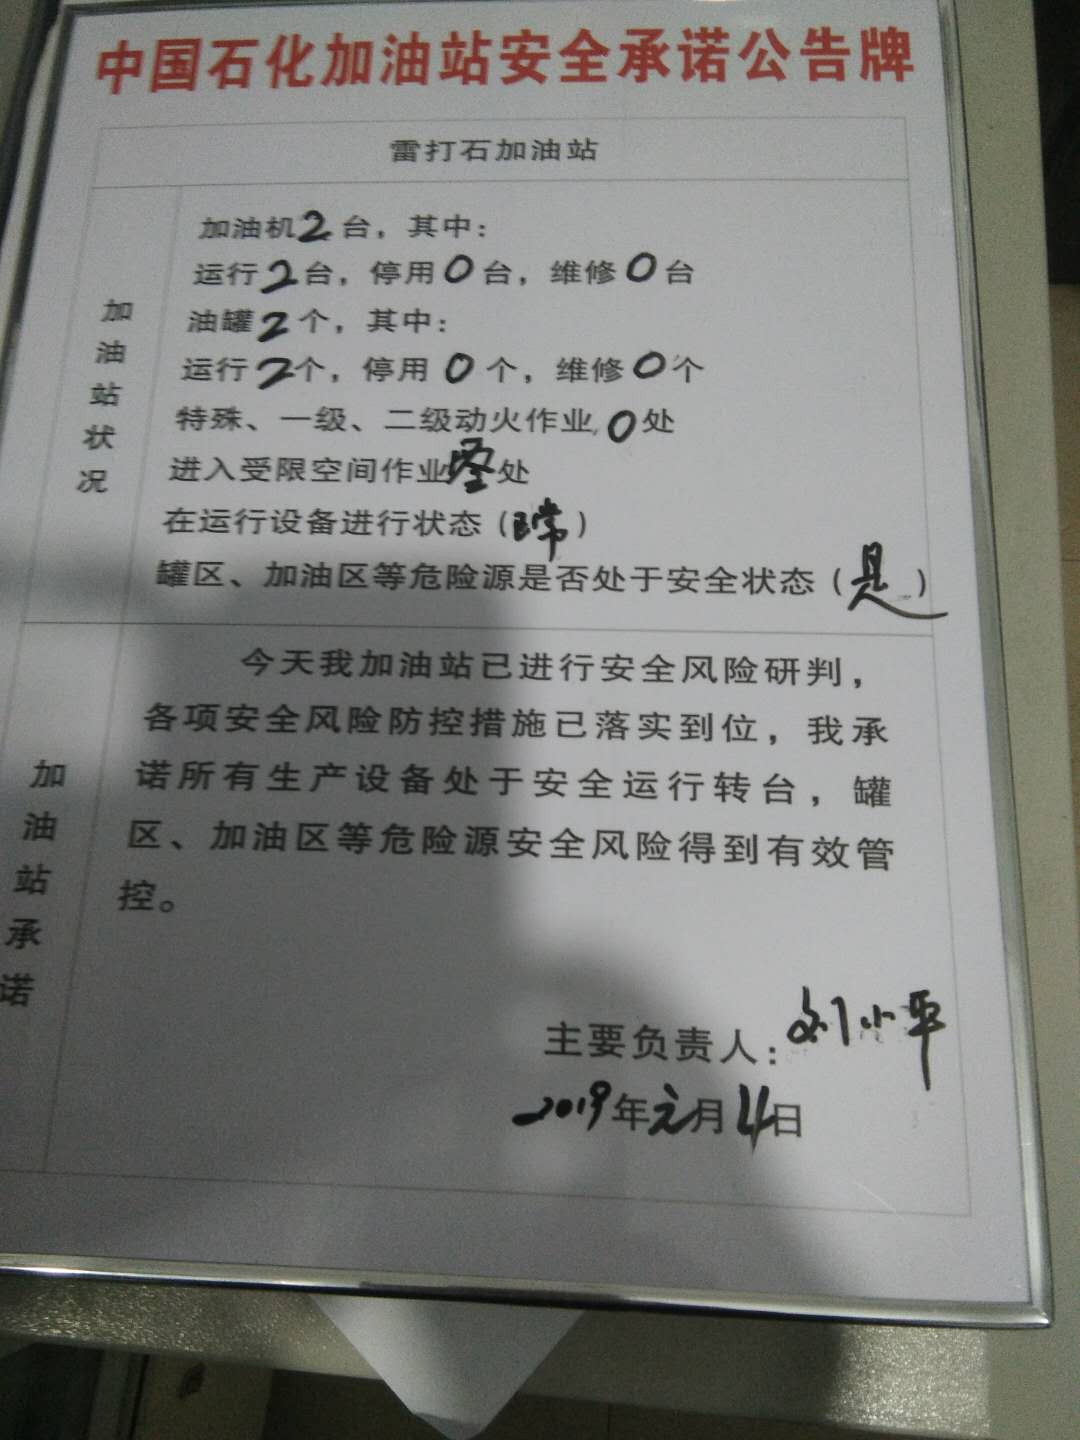 中国石化加油站安全承诺公告牌
雷打石加油站
加油站状况
加油机2台，其中：
运行2台，停用0台，维修0台
油罐2个，其中：
运行2个，停用0个，维修0个
特殊、一级、二级动火作业0处
进入受限空间作业处
在运行设备进行状态（正常）
罐区、加油区等危险源是否处于安全状态（是）
加油站承诺
今天我加油站已进行安全风险研判，
各项安全风险防控措施已落实到位，我承
诺所有生产设备处于安全运行转台，罐
区、加油区等危险源安全风险得到有效管
控。
主要负责人：刘小平
2019年元月4日